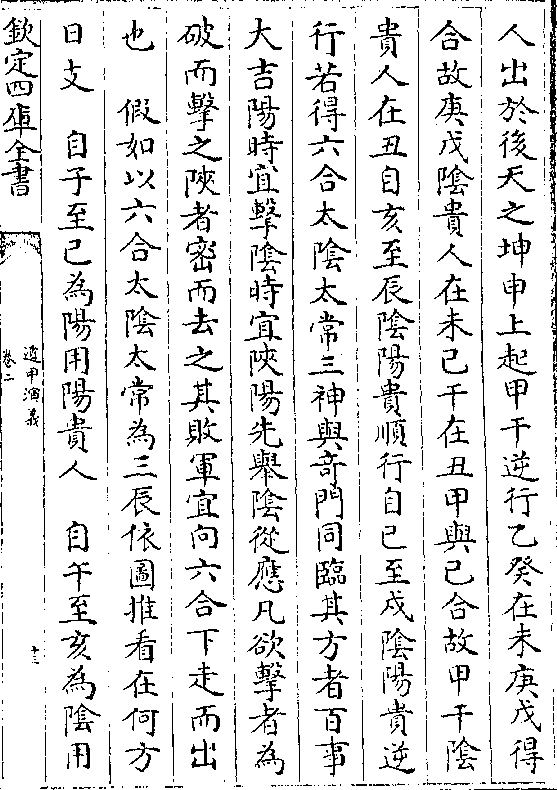 人出於後天之坤申上起甲干逆行乙癸在未庚戊得
合故庚戊陰貴人在未己干在丑甲與己合故甲干陰
貴人在丑自亥至辰陰陽貴順行自巳至戍陰陽貴逆
行若得六合太陰太常三神與竒門同臨其方者百事
大吉陽時宜擊陰時宜陜陽先舉陰從應凡欲擊者為
破而擊之陜者密而去之其敗軍宜向六合下走而出
也　假如以六合太陰太常為三辰依圖推看在何方
日支　自子至巳為陽用陽貴人　自午至亥為陰用
欽定四庫全書
遁甲演義
卷二
十三